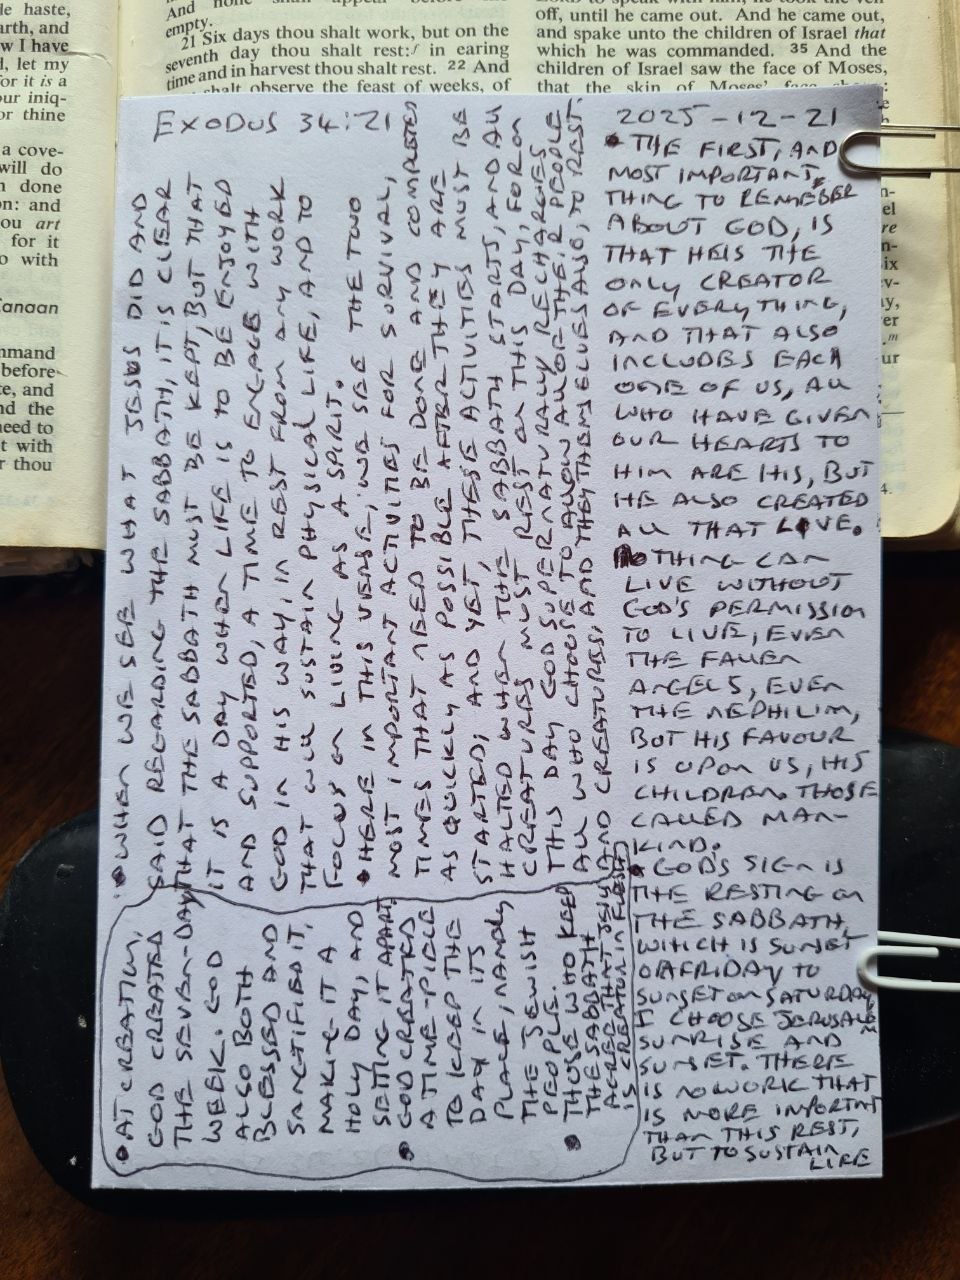 And none shall appear before me
empty.
21 Six days thou shalt work, but on the
seventh day thou shalt rest: in earing
time and in harvest thou shalt rest. 22 And
shalt observe the feast of weeks, of
off, until he came out. And he came out,
and spake unto the children of Israel that
which he was commanded. 35 And the
children of Israel saw the face of Moses,
that the skin of Moses' face
le haste,
arth, and
w I have
d, let my
for it is a
our iniq-
or thine
a cove-
will do
n done
on: and
ou art
for it
o with
Canaan
mmand
before
te, and
nd the
need to
t with
r thou
EXODUS 34:21
2025-12-21
• THE FIRST, AND
MOST IMPORTANT,
THING TO REMEMBER
ABOUT GOD, IS
THAT HE IS THE
ONLY CREATOR
OF EVERYTHING,
AND THAT ALSO
INCLUDES EACH
ONE OF US, ALL
WHO HAVE GIVEN
OUR HEARTS TO
HIM ARE HIS, BUT
HE ALSO CREATED
ALL THAT LIVE.
NOTHING CAN
LIVE WITHOUT
GOD'S PERMISSION
TO LIVE, EVEN
THE FALLEN
ANGELS, EVEN
THE NEPHILIM,
BUT HIS FAVOUR
IS UPON US, HIS
CHILDREN. THOSE
CALLED MAN-
KIND.
• GOD'S SIGN IS
THE RESTING ON
THE SABBATH,
WHICH IS SUNSET
ON FRIDAY TO
SUNSET ON SATURDAY
I CHOOSE JERUSALEM
SUNRISE AND
SUNSET. THERE
IS NO WORK THAT
IS MORE IMPORTANT
THAN THIS REST,
BUT TO SUSTAIN
LIFE
• WHEN WE SEE WHAT JESUS DID AND
SAID REGARDING THE SABBATH, IT IS CLEAR
THAT THE SABBATH MUST BE KEPT, BUT THAT
IT IS A DAY WHEN LIFE IS TO BE ENJOYED
AND SUPPORTED, A TIME TO ENGAGE WITH
GOD IN HIS WAY, IN REST FROM ANY WORK
THAT WILL SUSTAIN PHYSICAL LIFE, AND TO
FOCUS ON LIVING AS A SPIRIT.
• HERE IN THIS VERSE, WE SEE THE TWO
MOST IMPORTANT ACTIVITIES FOR SURVIVAL,
TIMES THAT NEED TO BE DONE AND COMPLETED
AS QUICKLY AS POSSIBLE AFTER THEY ARE
STARTED; AND YET, THESE ACTIVITIES MUST BE
HALTED WHEN THE SABBATH STARTS, AND ALL
CREATURES MUST REST ON THIS DAY, FOR ON
THIS DAY GOD SUPERNATURALLY RECHARGES
ALL WHO CHOOSE TO ALLOW ALL OF THEIR PEOPLE
AND CREATURES, AND THEY THEMSELVES ALSO, TO REST.
• AT CREATION,
GOD CREATED
THE SEVEN-DAY
WEEK. GOD
ALSO BOTH
BLESSED AND
SANCTIFIED IT,
MAKING IT A
HOLY DAY, AND
SETTING IT APART.
• GOD CREATED
A TIME-PIECE
TO KEEP THE
DAY IN ITS
PLACE, NAMELY
THE JEWISH
PEOPLE.
• THOSE WHO KEEP
THE SABBATH
AGREE THAT JESUS
IS CREATOR IN FLESH